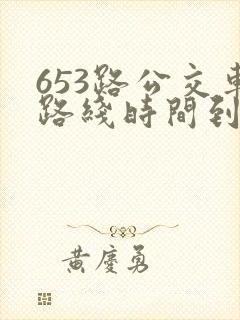 653路公交車
路綫時間到
黃慶勇